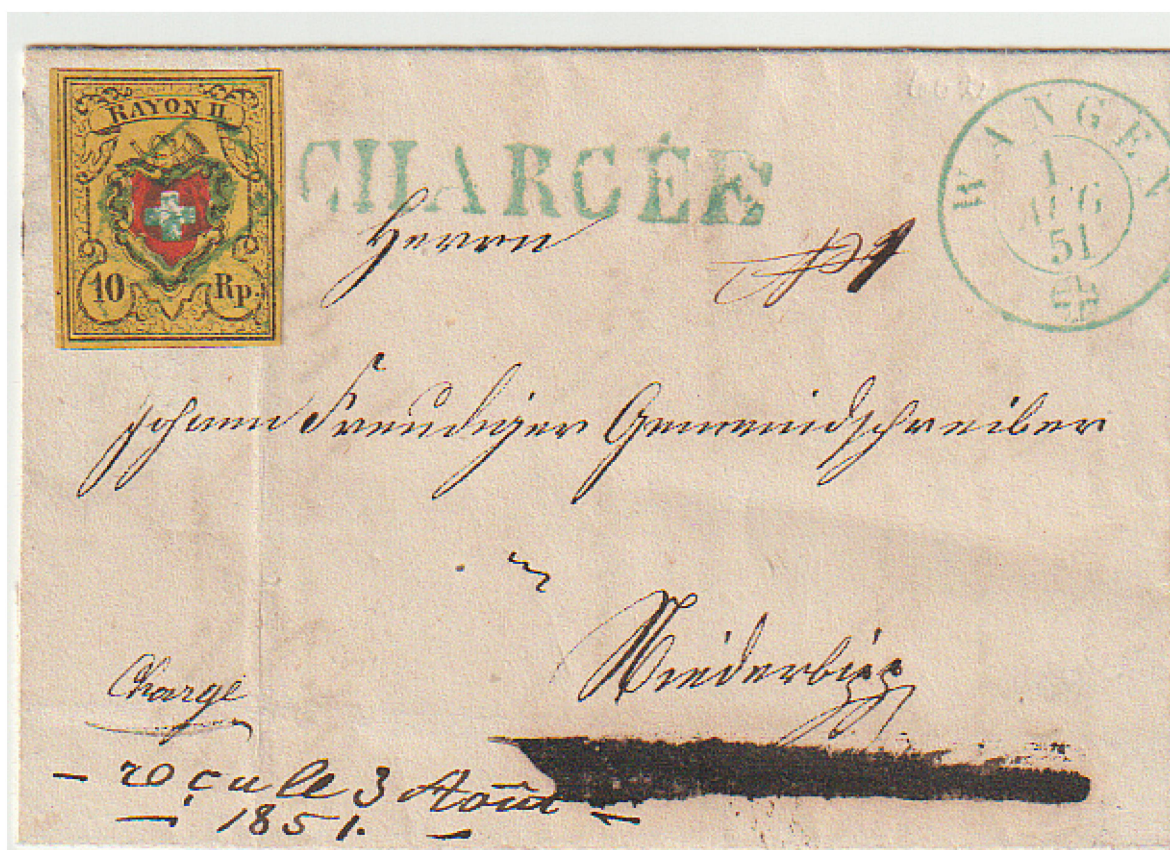 RAYON II
10 Rp.
CHARGÉE
WANGEN
1
AUG
51
Herrn
Johann Freudiger Gemeindschreiber
in
Niederbipp
Chargé
– reçu le 3 Août –
1851.